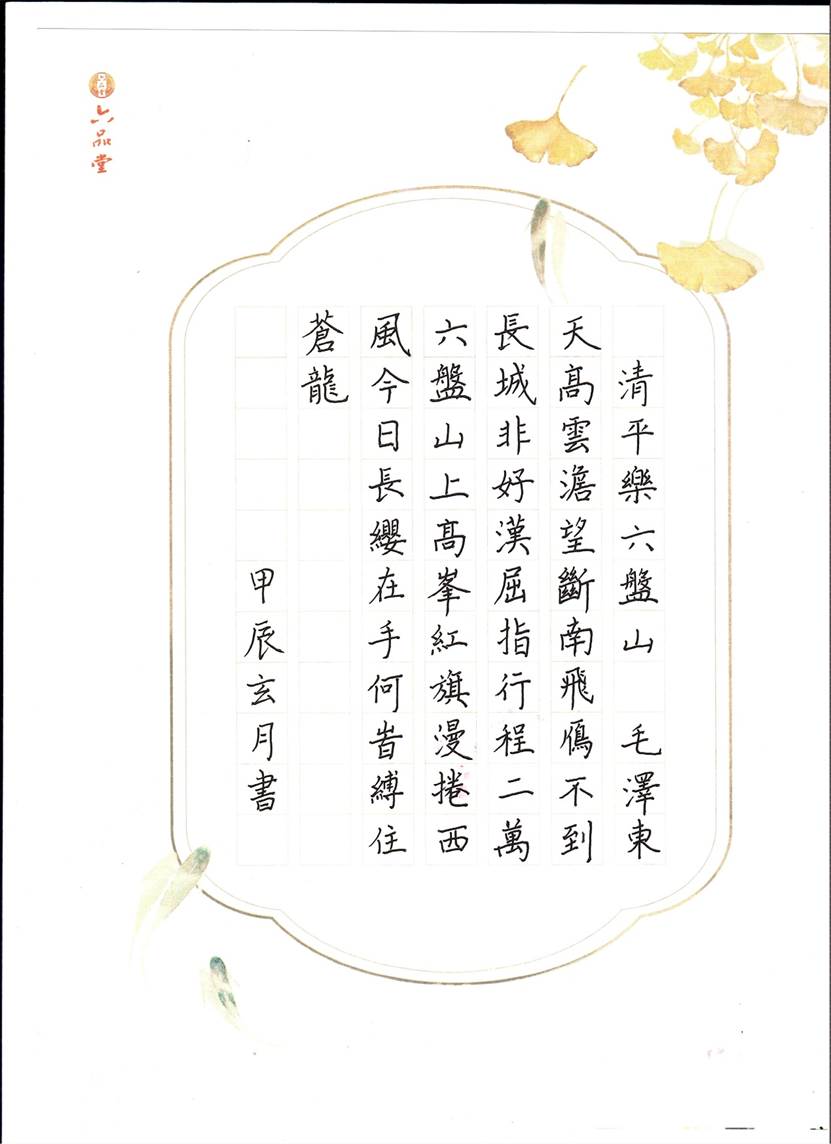 六品堂
清平樂六盤山　毛澤東
天髙雲澹望斷南飛鴈不到
長城非好漢屈指行程二萬
六盤山上髙峯紅旗漫捲西
風今日長纓在手何旹縛住
蒼龍
甲辰玄月書